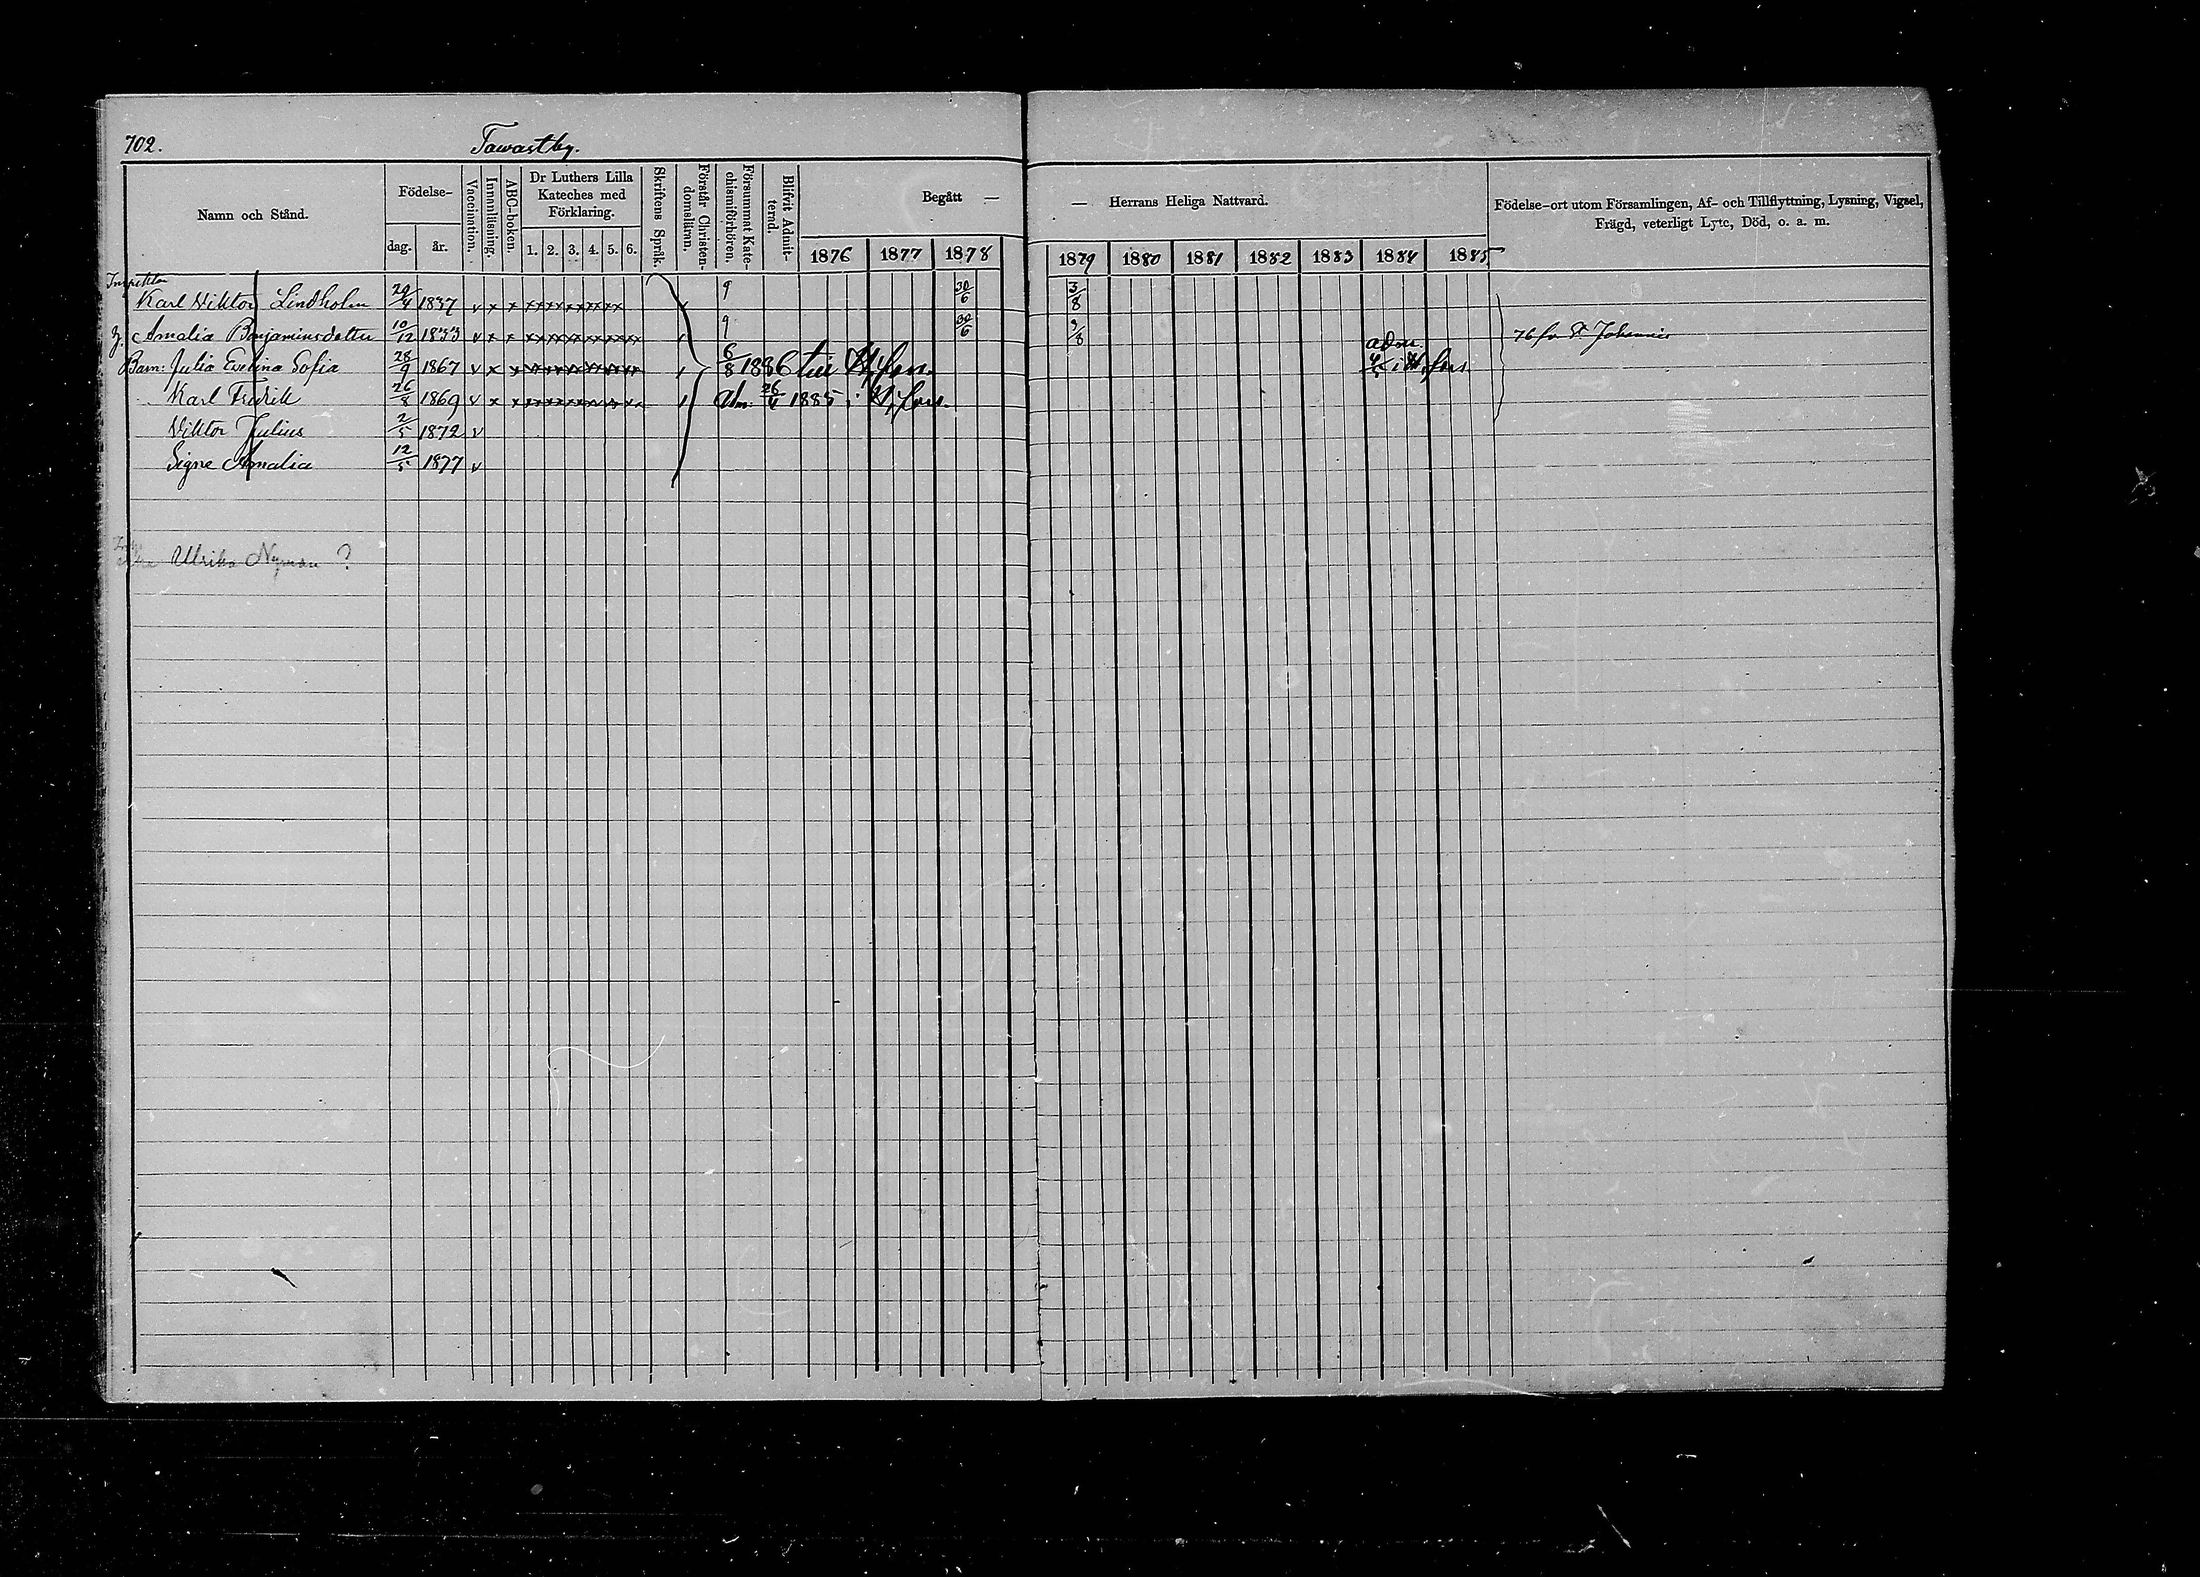 702. Tawastby.
Namn och Stånd. Födelse- dag. år. Vaccination. Innanläsning. ABC-boken. Dr Luthers Lilla Kateches med Förklaring. 1. 2. 3. 4. 5. 6. Skriftens Språk. Förstår Christendomsläran. Försummat Katechismiförhören. Blifvit Admitterad. Begått — 1876 1877 1878
— Herrans Heliga Nattvard. 1879 1880 1881 1882 1883 1884 1885
Födelse-ort utom Församlingen, Af- och Tillflyttning, Lysning, Vigsel,
Frägd, veterligt Lyte, Död, o. a. m.
Inspektor
Karl Viktor Lindholm 29/4 1837 v x x xxxxxxxxxx 9 30/6 3/8
h. Amalia Benjaminsdotter 10/12 1833 v x x xxxxxxxxxxxx 9 30/6 3/8 76 fr. St Johannis
Barn: Julia Evelina Sofia 28/9 1867 v x x xxxxxxxxxxxx 6/8 1886 till H:fors. adm. i H.fors
Karl Fredrik 26/8 1869 v x x xxxxxxxxxxxx Adm. 26/4 1885 i H:fors.
Viktor Julius 2/5 1872 v
Signe Amalia 12/5 1877 v
Ulrika Nyman ?